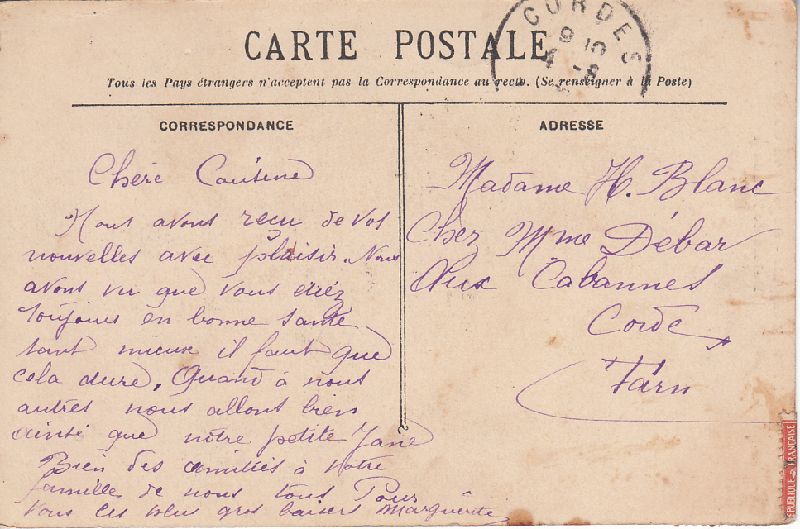 CARTE POSTALE
CORDES
9 10
4 -8
Tous les Pays étrangers n'acceptent pas la Correspondance au recto. (Se renseigner à la Poste)
CORRESPONDANCE
ADRESSE
Chère Cousine
Nous avons recu de vos
nouvelles avec plaisir. Nous
avons vu que vous étiez
toujours en bonne santé
tant mieux il faut que
cela dure. Quand à nous
autres nous allons bien
ainsi que nôtre petite Jane
Bien des amitiés à votre
famille de nous tous Pour
vous les plus gros baisers Marguerite
Madame H. Blanc
Chez Mme Débar
Aux Cabannes
Corde
Tarn
RÉPUBLIQUE FRANÇAISE